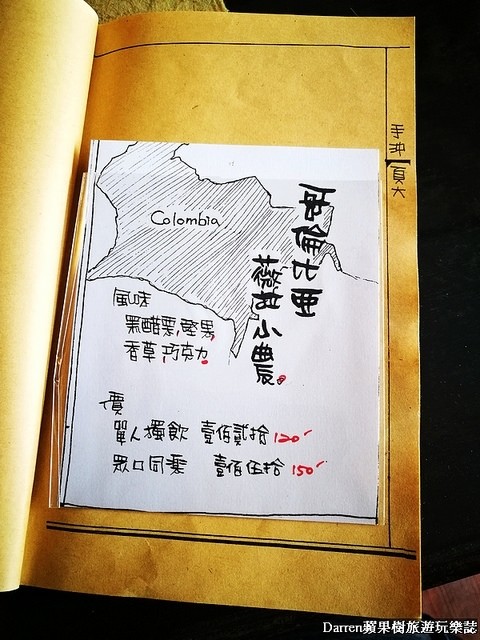 手沖
頁六
Colombia
哥倫比亞
小農。
風味
黑醋栗,堅果,
香草,巧克力。
價
單人獨飲 壹佰貳拾 120
眾口同乘 壹佰伍拾 150
Darren蘋果樹旅遊玩樂誌